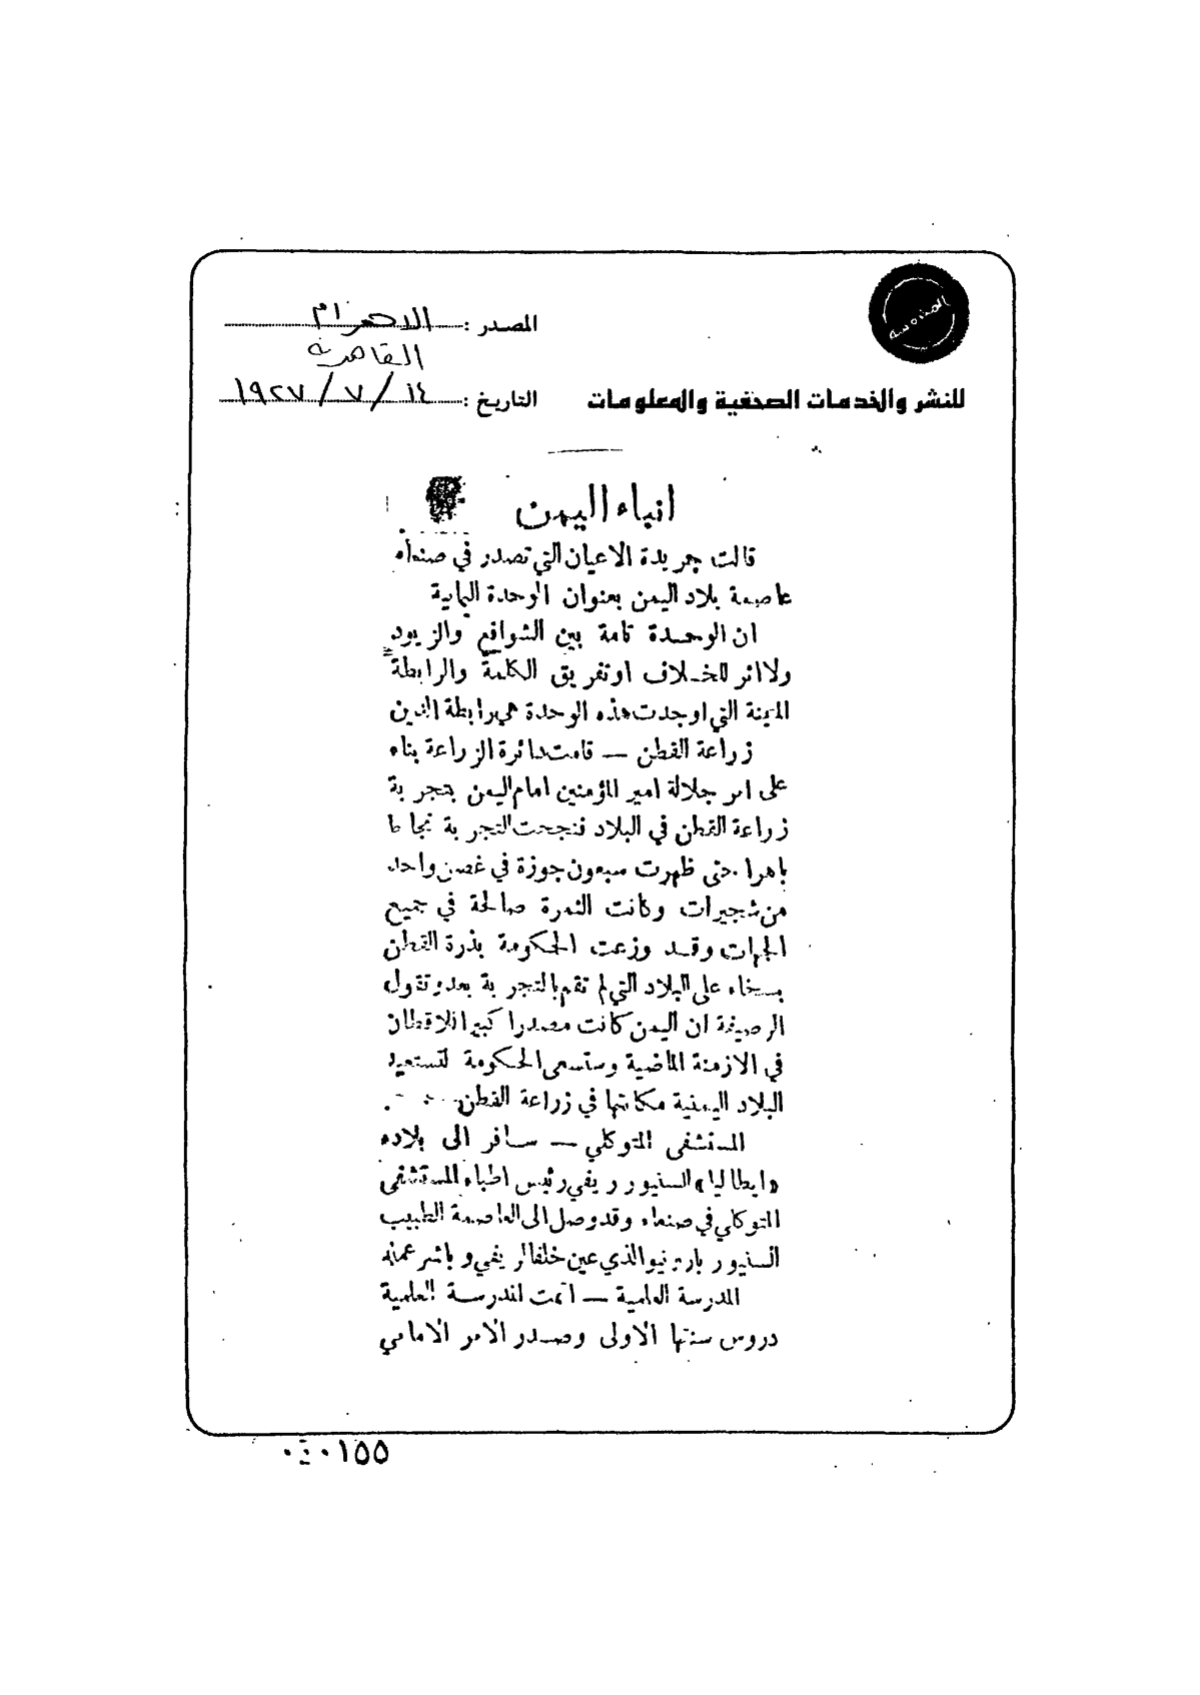 المصدر : الاهرام
القاهرة
للنشر والخدمات الصحفية والمعلومات
التاريخ : ١٤ / ٧ / ١٩٢٧
انباء اليمن
قالت جريدة الاعيان التي تصدر في صنعاء
عاصمة بلاد اليمن بعنوان الوحدة اليمانية
ان الوحدة تامة بين الشوافع والزيود
ولا اثر للخلاف او تفريق الكلمة والرابطة
المتينة التي اوجدت هذه الوحدة هي رابطة الدين
زراعة القطن — قامت دائرة الزراعة بناء
على امر جلالة امير المؤمنين امام اليمن بتجربة
زراعة القطن في البلاد فنجحت التجربة نجاحا
باهرا حتى ظهرت سبعون جوزة في غصن واحد
من شجيرات وكانت الثمرة صالحة في جميع
الجهات وقد وزعت الحكومة بذرة القطن
بسخاء على البلاد التي لم تقم بالتجربة بعد وتقول
الرصيفة ان اليمن كانت مصدرا كبيرا للاقطان
في الازمنة الماضية وستسعى الحكومة لتستعيد
البلاد اليمنية مكانتها في زراعة القطن
المستشفى المتوكلي — سافر الى بلاده
«ايطاليا» السنيور ريفي رئيس اطباء المستشفى
المتوكلي في صنعاء وقد وصل الى العاصمة الطبيب
السنيور الذي عين خلفا لريفي وباشر عمله
المدرسة العلمية — اتمت المدرسة العلمية
دروس سنتها الاولى وصدر الامر الامامي